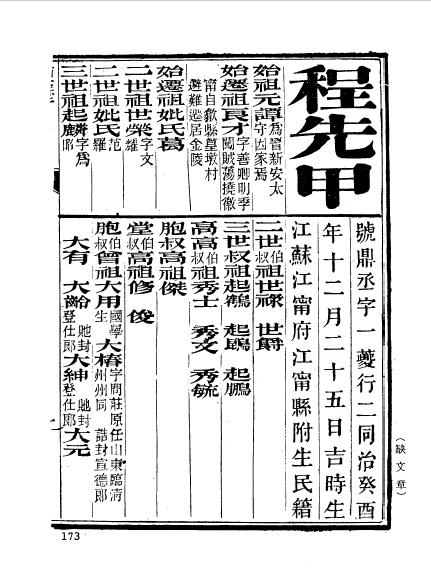 程先甲
號鼎丞字一夔行二同治癸酉
年十二月二十五日吉時生
江蘇江甯府江甯縣附生民籍
始祖元譚為晉新安太守因家焉
始遷祖良才字善卿明季闖賊蕩撓徽甯自歙縣臯墩村避難遷居金陵
始遷祖妣氏葛
二世祖世榮字文耀
二世祖妣氏范羅
三世祖起麟字為昭
二世伯叔祖世祿 世爵
三世叔祖起鶴 起鵾 起鵬
高高伯叔祖秀士 秀文 秀毓
胞叔高祖傑
堂伯叔高祖修 俊
胞伯叔曾祖大用國學生 大椿字問莊原任山東臨清州州同 誥封宣德郎
大有 大齡貤封登仕郎 大紳貤封登仕郎 大元
(缺文章)
173